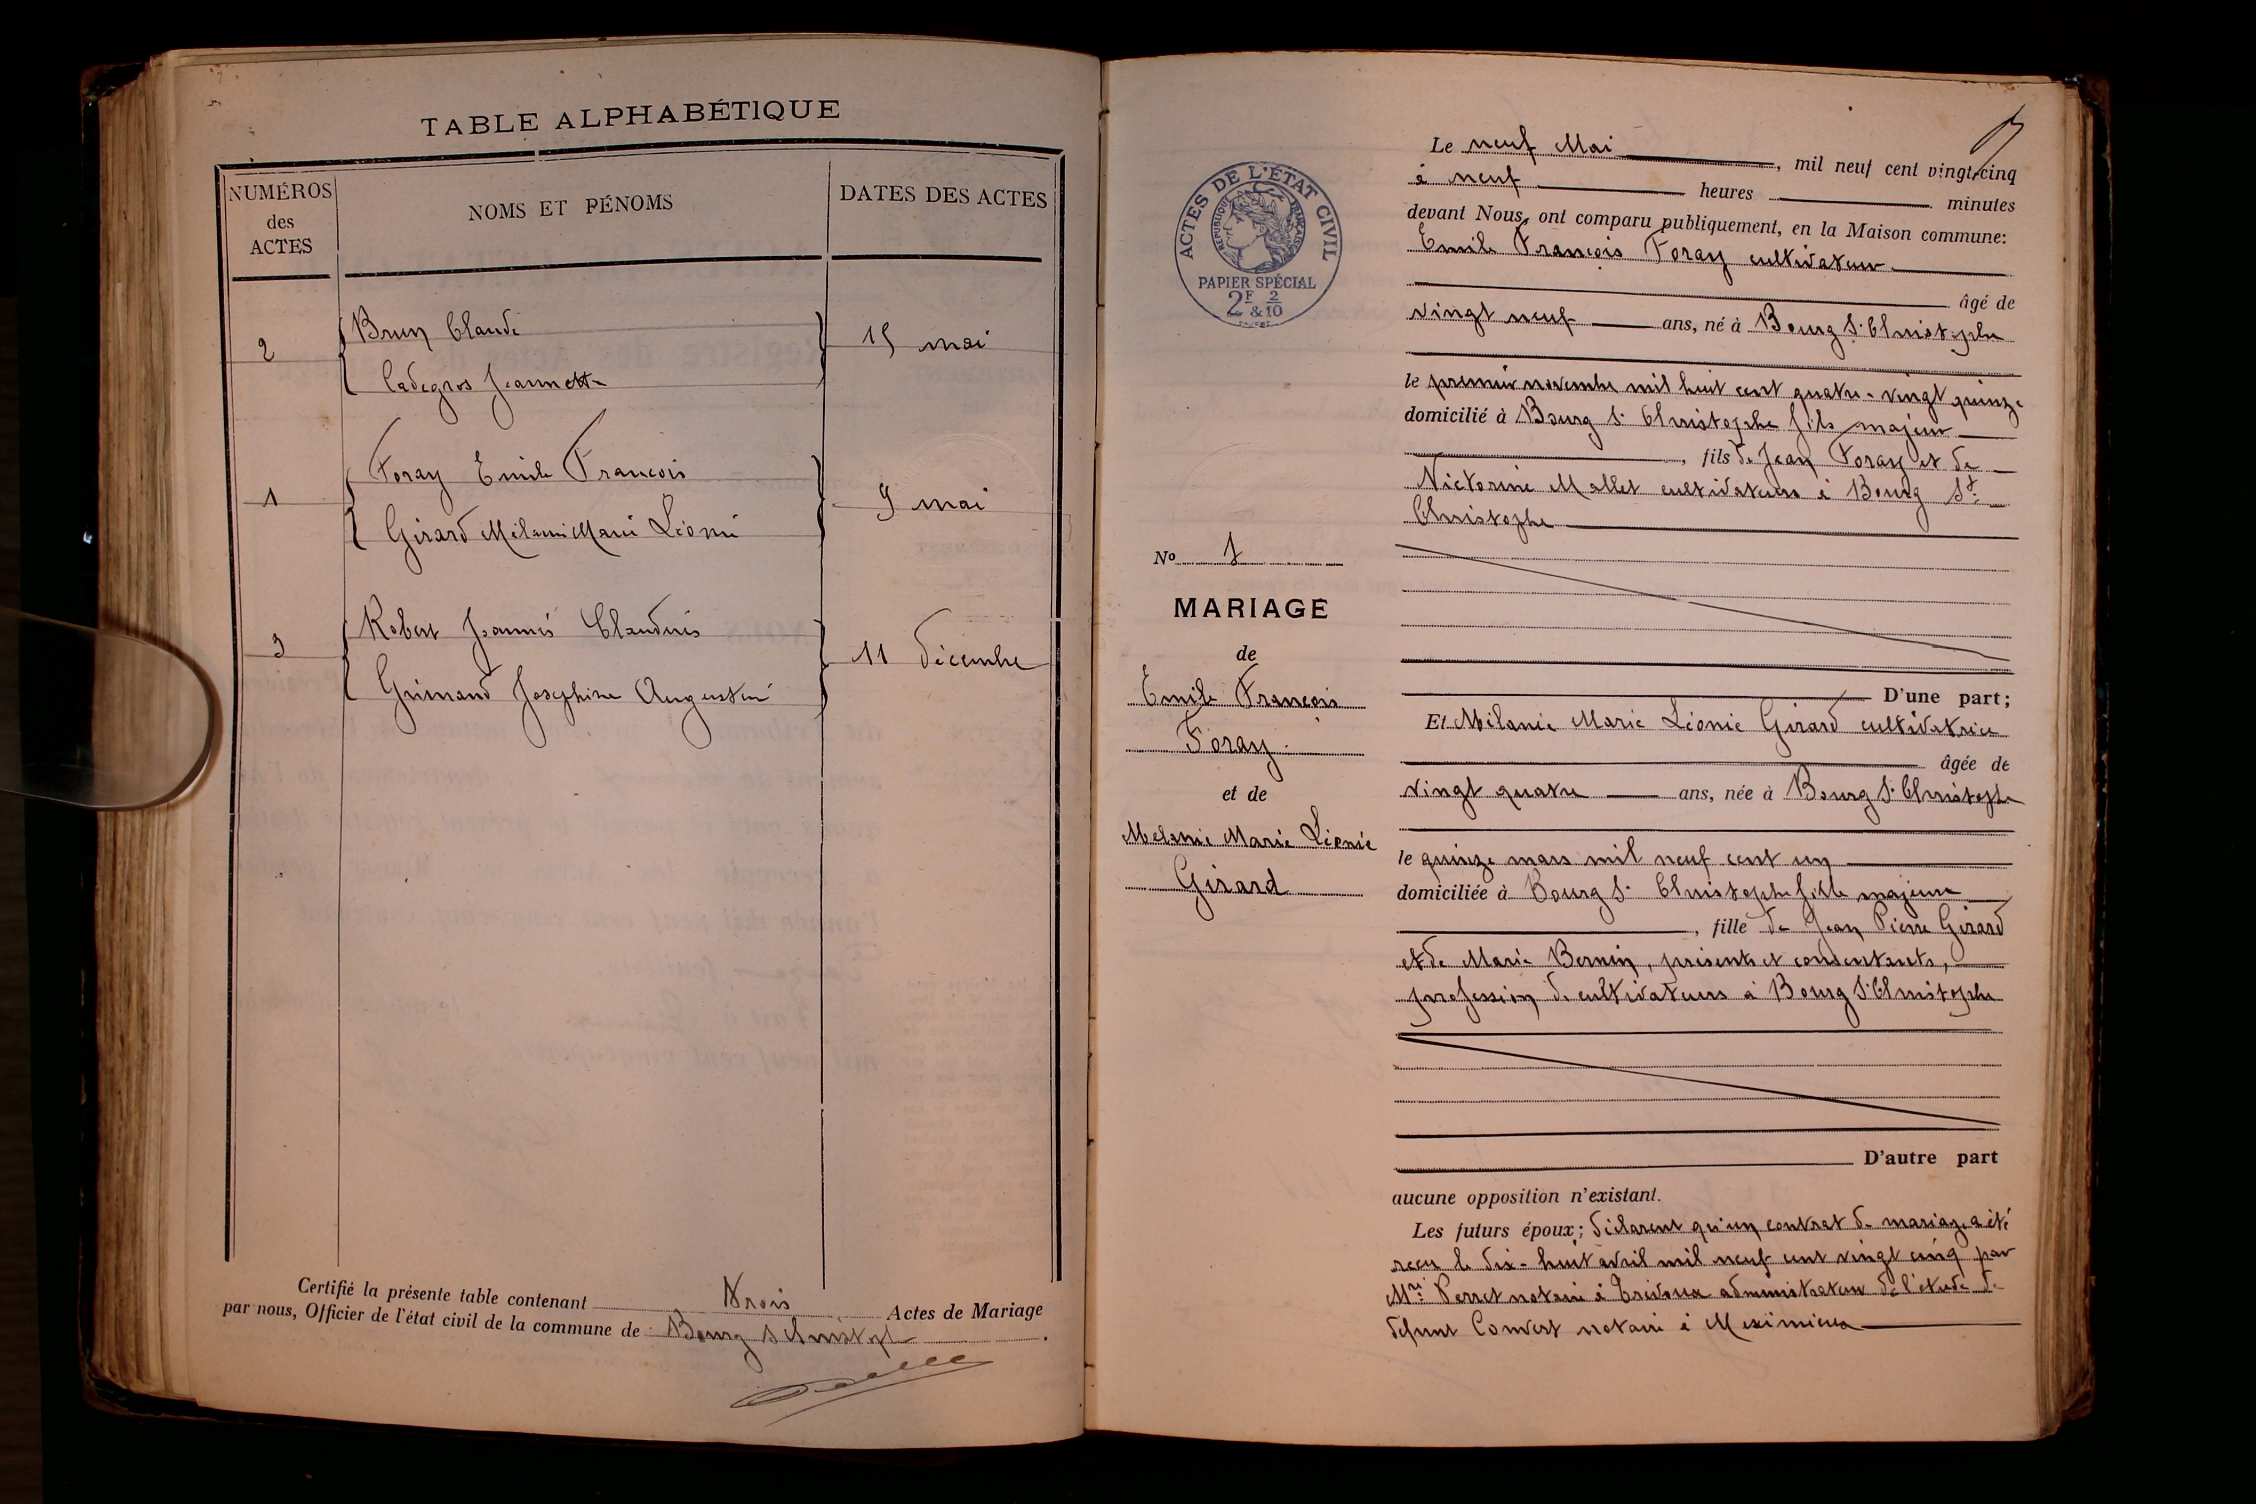 TABLE ALPHABÉTIQUE
NUMÉROS
des
ACTES
NOMS ET PÉNOMS
DATES DES ACTES
2
Brun Claude
Cadegros Jeannette
15 mai
1
Foray Emile François
Girard Mélanie Marie Léonie
9 mai
3
Robert Joannès Claudius
Grimand Josephine Augustine
11 décembre
Certifié la présente table contenant trois Actes de Mariage
par nous, Officier de l'état civil de la commune de Bourg St Christophe
ACTES DE L'ÉTAT CIVIL
RÉPUBLIQUE FRANÇAISE
PAPIER SPÉCIAL
2F & 2/10
No 1
MARIAGE
de
Emile François
Foray
et de
Mélanie Marie Léonie
Girard
Le neuf Mai, mil neuf cent vingt-cinq
à neuf heures minutes
devant Nous, ont comparu publiquement, en la Maison commune:
Emile François Foray cultivateur
âgé de
vingt neuf ans, né à Bourg St Christophe
le premier novembre mil huit cent quatre-vingt quinze
domicilié à Bourg St Christophe fils majeur
, fils de Jean Foray et de
Victorine Mallet cultivateurs à Bourg St
Christophe
D'une part;
Et Mélanie Marie Léonie Girard cultivatrice
âgée de
vingt quatre ans, née à Bourg St Christophe
le quinze mars mil neuf cent un
domiciliée à Bourg St Christophe fille majeure
, fille de Jean Pierre Girard
et de Marie Bernin, présents et consentants,
profession de cultivateurs à Bourg St Christophe
D'autre part
aucune opposition n'existant.
Les futurs époux; déclarent qu'un contrat de mariage a été
reçu le dix-huit avril mil neuf cent vingt cinq par
Mre Perret notaire à Trévoux administrateur de l'étude de
défunt Convert notaire à Meximieux